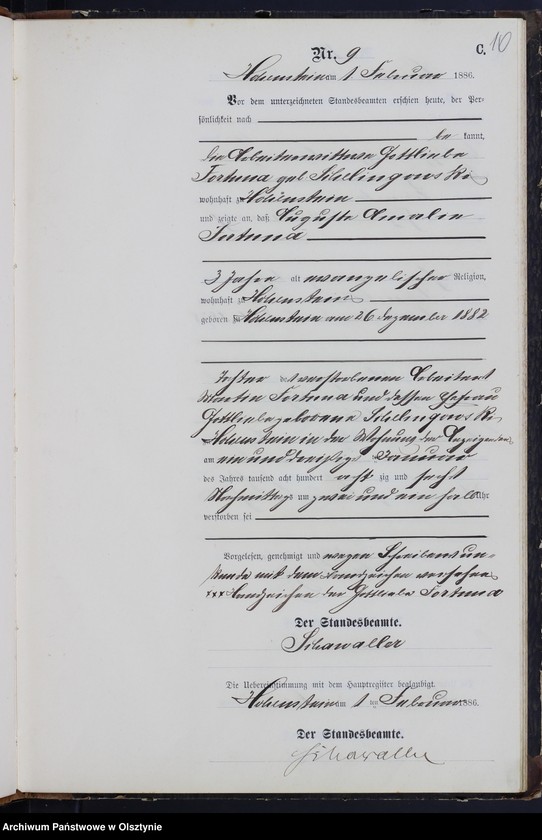 Nr. 9
C. 10
Hohenstein am 1 Februar 1886.
Vor dem unterzeichneten Standesbeamten erschien heute, der Per-
sönlichkeit nach
be kannt,
die Arbeiterwittwe Gottliebe
Fortuna geb
wohnhaft zu Hohenstein
und zeigte an, daß Auguste Amalie
Fortuna
3 Jahre alt evangelischer Religion,
wohnhaft zu Hohenstein
geboren zu Hohenstein am 26 Dezember 1882
Tochter des verstorbenen Arbeiters
Martin Fortuna und dessen Ehefrau
Gottliebe geborene
Hohenstein in der Wohnung der Anzeigenden
am ein und dreißigst Januar
des Jahres tausend acht hundert acht zig und sechs
Nachmittags um zwei und ein halb Uhr
verstorben sei
Vorgelesen, genehmigt und wegen Schreibensun-
kunde mit dem Handzeichen versehen
+++ Handzeichen der Gottliebe Fortuna
Der Standesbeamte.
Schawaller
Die Uebereinstimmung mit dem Hauptregister beglaubigt.
Hohenstein am 1 ten Februar 1886.
Der Standesbeamte.
Schawaller
Archiwum Państwowe w Olsztynie